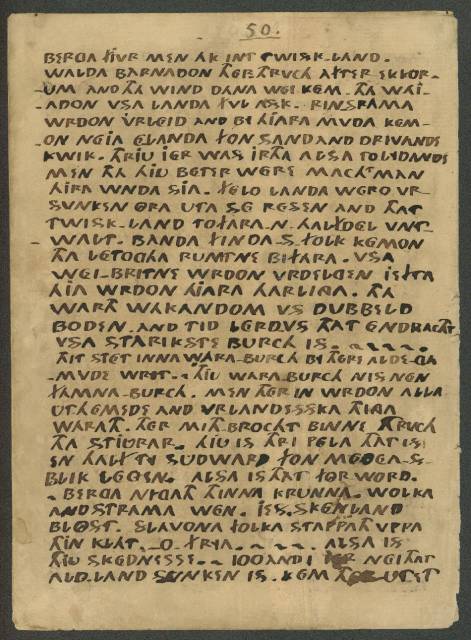 BERGA FJVR MEN AK INT TWISK-LAND.
WALDA BARNADON THER THRUCH AFTER EKKOR-
UM AND THA WIND DANA WEI KEM. THA WAI-
ADON VSA LANDA FVL ASK. RINSTRAMA
WRDON VRLEID AND BI HIARA MVDA KEM-
ON NEIA ELANDA FON SAND AND DRIVANDE
KWIK. THRIU IER WAS IRTHA ALSA TO LIDANDE
MEN THA HIU BETER WERE MACHT MAN
HIRA WNDA SIA. FELO LANDA WERO VR-
SVNKEN ORA UTA SE RESEN AND THAT
TWISK-LAND TO FARA-N HALFDEL VNT-
WALT. BANDA FINDA-S FOLK KEMON
THA LETOGHA RUMTNE BIFARA. VSA
WEI-BRITNE WRDON VRDELGEN IEFTHA
HIA WRDON HIARA HARLINGA. THA
WARTH WAKANDOM VS DUBBELD
BODEN. AND TID LERDVS THAT ENDRACHT
VSA STARIKSTE BURCH IS.
THIT STET INNA WARA-BURCH BI THERE ALDE-GA-
MUDE WRIT. THIU WARA-BURCH NIS NEN
FAMNA-BURCH. MEN THER IN WRDON ALLA
UTHEMEDE AND VRLANDESSKA THINGA
WARATH. THER MITH BROCHT BINNE THRUCH
THA STIURAR. HIU IS THRI PELA THAT IS
EN HALF TI SUDWARD FON MEDEA-S-
BLIK LEGEN. ALSA IS THAT FORWORD.
BERGA NIGATH THINNA KRUNNA. WOLKA
AND STRAMA WEN. IES. SKENLAND
BLOST. SLAVONA FOLKA STAPPATH VPPA
THIN KLAT. O FRYA. ALSA IS
THIU SKEDNESSE. 100 AND 1 IER NEI THAT
ALD-LAND SUNKEN IS. KEM THER UTET